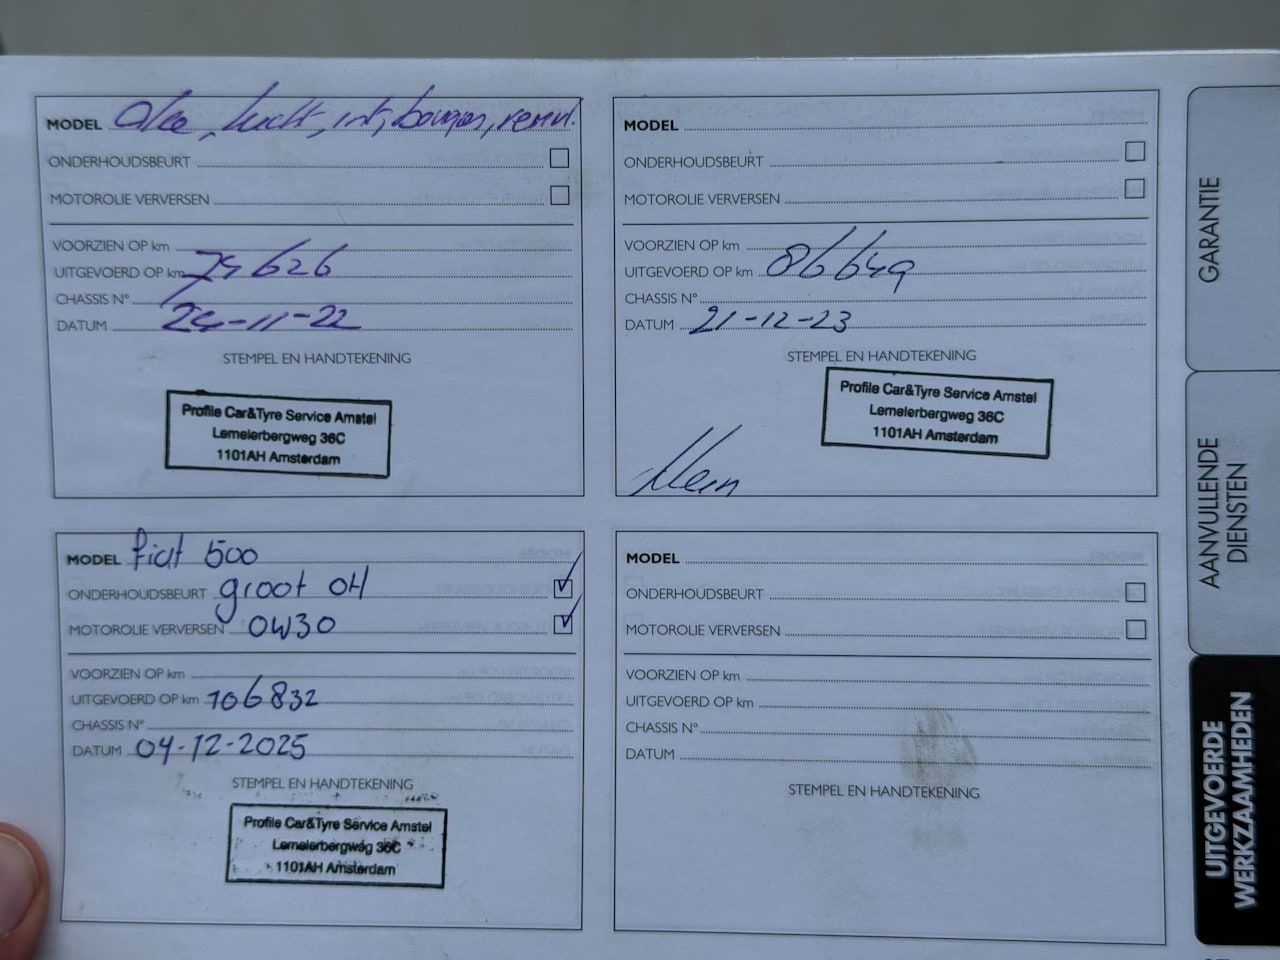 MODEL Olie, lucht, int, bougies, remvl.
ONDERHOUDSBEURT
MOTOROLIE VERVERSEN
VOORZIEN OP km
UITGEVOERD OP km 74626
CHASSIS N°
DATUM 24-11-22
STEMPEL EN HANDTEKENING
Profile Car&Tyre Service Amstel
Lemelerbergweg 36C
1101AH Amsterdam
MODEL
ONDERHOUDSBEURT
MOTOROLIE VERVERSEN
VOORZIEN OP km
UITGEVOERD OP km 86649
CHASSIS N°
DATUM 21-12-23
STEMPEL EN HANDTEKENING
Profile Car&Tyre Service Amstel
Lemelerbergweg 36C
1101AH Amsterdam
MODEL fiat 500
ONDERHOUDSBEURT groot OH
MOTOROLIE VERVERSEN 0W30
VOORZIEN OP km
UITGEVOERD OP km 106832
CHASSIS N°
DATUM 04-12-2025
STEMPEL EN HANDTEKENING
Profile Car&Tyre Service Amstel
Lemelerbergweg 36C
1101AH Amsterdam
MODEL
ONDERHOUDSBEURT
MOTOROLIE VERVERSEN
VOORZIEN OP km
UITGEVOERD OP km
CHASSIS N°
DATUM
STEMPEL EN HANDTEKENING
GARANTIE
AANVULLENDE
DIENSTEN
UITGEVOERDE
WERKZAAMHEDEN